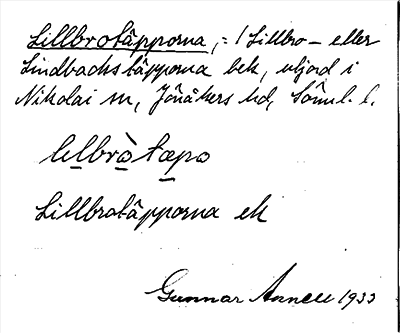 Lillbrotäpporna, = / Lillbro- eller
Lindbackstäpporna bek, utjord i
Nikolai sn, Jönåkers hd, Söml. l.
lɩlbrò tæpo
Lillbrotäpporna ek
Gunnar Annell 1933